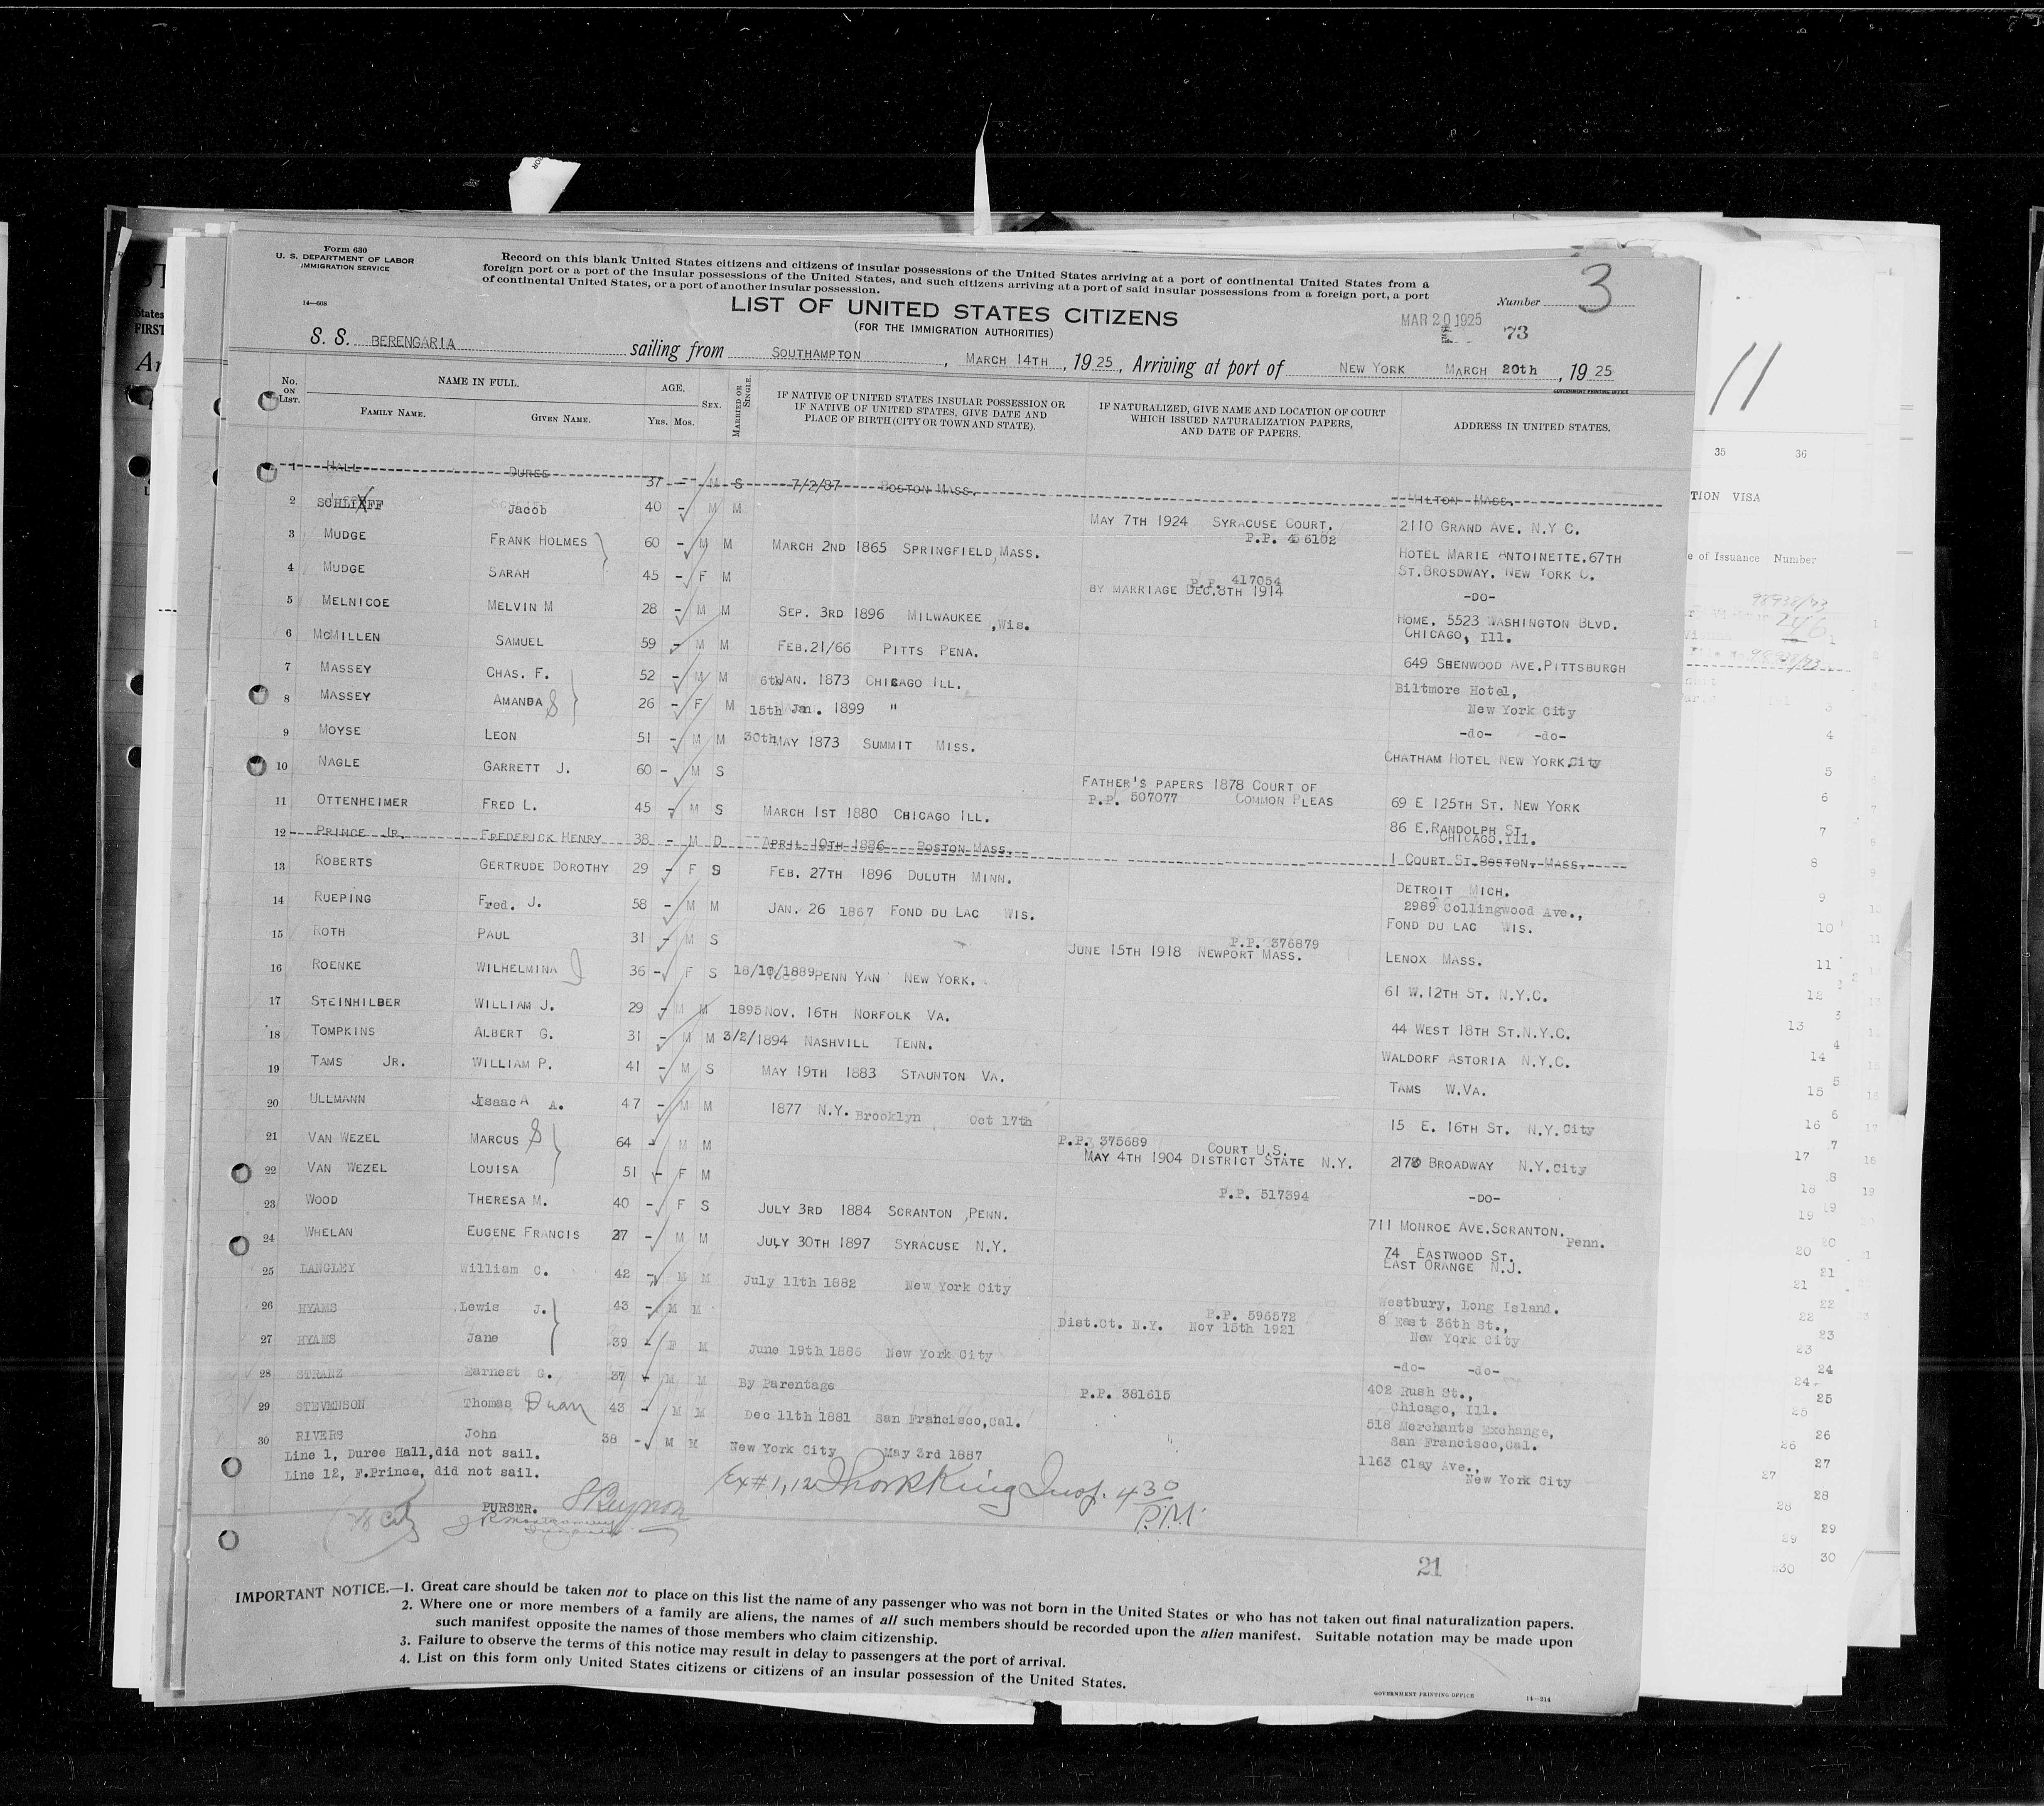 Form 630
U. S. DEPARTMENT OF LABOR
IMMIGRATION SERVICE
14—608
Record on this blank United States citizens and citizens of insular possessions of the United States arriving at a port of continental United States from a
foreign port or a port of the insular possessions of the United States, and such citizens arriving at a port of said insular possessions from a foreign port, a port
of continental United States, or a port of another insular possession.
LIST OF UNITED STATES CITIZENS
(FOR THE IMMIGRATION AUTHORITIES)
Number 3
MAR 20 1925
73
S. S. BERENGARIA sailing from SOUTHAMPTON, MARCH 14TH, 1925, Arriving at port of NEW YORK MARCH 20th, 1925
GOVERNMENT PRINTING OFFICE
No. ON LIST. NAME IN FULL. FAMILY NAME. GIVEN NAME. AGE. YRS. MOS. SEX. MARRIED OR SINGLE. IF NATIVE OF UNITED STATES INSULAR POSSESSION OR IF NATIVE OF UNITED STATES, GIVE DATE AND PLACE OF BIRTH (CITY OR TOWN AND STATE). IF NATURALIZED, GIVE NAME AND LOCATION OF COURT WHICH ISSUED NATURALIZATION PAPERS, AND DATE OF PAPERS. ADDRESS IN UNITED STATES.
1 HALL DUREE 37 - M S 7/2/87 BOSTON MASS. MILTON MASS.
2 SCHLIFF Jacob 40 - M M MAY 7TH 1924 SYRACUSE COURT. P.P. 456102 2110 GRAND AVE. N.Y C.
3 MUDGE FRANK HOLMES 60 - M M MARCH 2ND 1865 SPRINGFIELD, MASS. HOTEL MARIE ANTOINETTE.67TH ST.BROSDWAY. NEW YORK C.
4 MUDGE SARAH 45 - F M P.P. 417054 BY MARRIAGE DEC.8TH 1914 -DO-
5 MELNICOE MELVIN M 28 - M M SEP. 3RD 1896 MILWAUKEE, Wis. HOME. 5523 WASHINGTON BLVD. CHICAGO, Ill.
6 MCMILLEN SAMUEL 59 - M M FEB.21/66 PITTS PENA. 649 SHENWOOD AVE.PITTSBURGH
7 MASSEY CHAS. F. 52 - M M 6th JAN. 1873 CHICAGO ILL. Biltmore Hotel, New York City
8 MASSEY AMANDA S 26 - F M 15th Jan. 1899 " -do- -do-
9 MOYSE LEON 51 - M M 30th MAY 1873 SUMMIT MISS. CHATHAM HOTEL NEW YORK.City
10 NAGLE GARRETT J. 60 - M S FATHER'S PAPERS 1878 COURT OF P.P. 507077 COMMON PLEAS 69 E 125TH ST. NEW YORK
11 OTTENHEIMER FRED L. 45 - M S MARCH 1ST 1880 CHICAGO ILL. 86 E.RANDOLPH ST. CHICAGO.Ill.
12 PRINCE JR. FREDERICK HENRY 38 - M D APRIL 10TH 1886 BOSTON MASS. 1 COURT ST.BOSTON. MASS.
13 ROBERTS GERTRUDE DOROTHY 29 - F S FEB. 27TH 1896 DULUTH MINN. DETROIT MICH. 2989 Collingwood Ave.,
14 RUEPING Fred. J. 58 - M M JAN. 26 1867 FOND DU LAC WIS. FOND DU LAC WIS.
15 ROTH PAUL 31 - M S P.P. 376879 JUNE 15TH 1918 NEWPORT MASS. LENOX MASS.
16 ROENKE WILHELMINA J 36 - F S 18/10/1889 PENN YAN NEW YORK. 61 W.12TH ST. N.Y.C.
17 STEINHILBER WILLIAM J. 29 - M M 1895 NOV. 16TH NORFOLK VA. 44 WEST 18TH ST.N.Y.C.
18 TOMPKINS ALBERT G. 31 - M M 3/2/1894 NASHVILL TENN. WALDORF ASTORIA N.Y.C.
19 TAMS JR. WILLIAM P. 41 - M S MAY 19TH 1883 STAUNTON VA. TAMS W.VA.
20 ULLMANN Isaac A. 47 - M M 1877 N.Y. Brooklyn Oct 17th 15 E. 16TH ST. N.Y.City
21 VAN WEZEL MARCUS S 64 - M M P.P. 375689 COURT U.S. MAY 4TH 1904 DISTRICT STATE N.Y. 2178 BROADWAY N.Y.City
22 VAN WEZEL LOUISA 51 - F M P.P. 517394 -DO-
23 WOOD THERESA M. 40 - F S JULY 3RD 1884 SCRANTON, PENN. 711 MONROE AVE.SCRANTON. Penn.
24 WHELAN EUGENE FRANCIS 27 - M M JULY 30TH 1897 SYRACUSE N.Y. 74 EASTWOOD ST. EAST ORANGE N.J.
25 LANGLEY William C. 42 - M M July 11th 1882 New York City Westbury, Long Island.
26 HYAMS Lewis J. 43 - M M P.P. 596572 Dist.Ct. N.Y. Nov 15th 1921 8 East 36th St., New York City
27 HYAMS Jane 39 - F M June 19th 1886 New York City -do- -do-
28 STRANZ Earnest G. 37 - M M By Parentage P.P. 381615 402 Rush St., Chicago, Ill.
29 STEVENSON Thomas Duan 43 - M M Dec 11th 1881 San Francisco,Cal. 518 Merchants Exchange, San Francisco,Cal.
30 RIVERS John 38 - M M New York City May 3rd 1887 1163 Clay Ave., New York City
Line 1, Duree Hall,did not sail.
Line 12, F.Prince, did not sail.
Ex # 1, 12 Insp. 4 30 P.M.
PURSER.
21
IMPORTANT NOTICE.—1. Great care should be taken not to place on this list the name of any passenger who was not born in the United States or who has not taken out final naturalization papers.
2. Where one or more members of a family are aliens, the names of all such members should be recorded upon the alien manifest. Suitable notation may be made upon
such manifest opposite the names of those members who claim citizenship.
3. Failure to observe the terms of this notice may result in delay to passengers at the port of arrival.
4. List on this form only United States citizens or citizens of an insular possession of the United States.
GOVERNMENT PRINTING OFFICE 14—314
11
35 36
TION VISA
e of Issuance Number